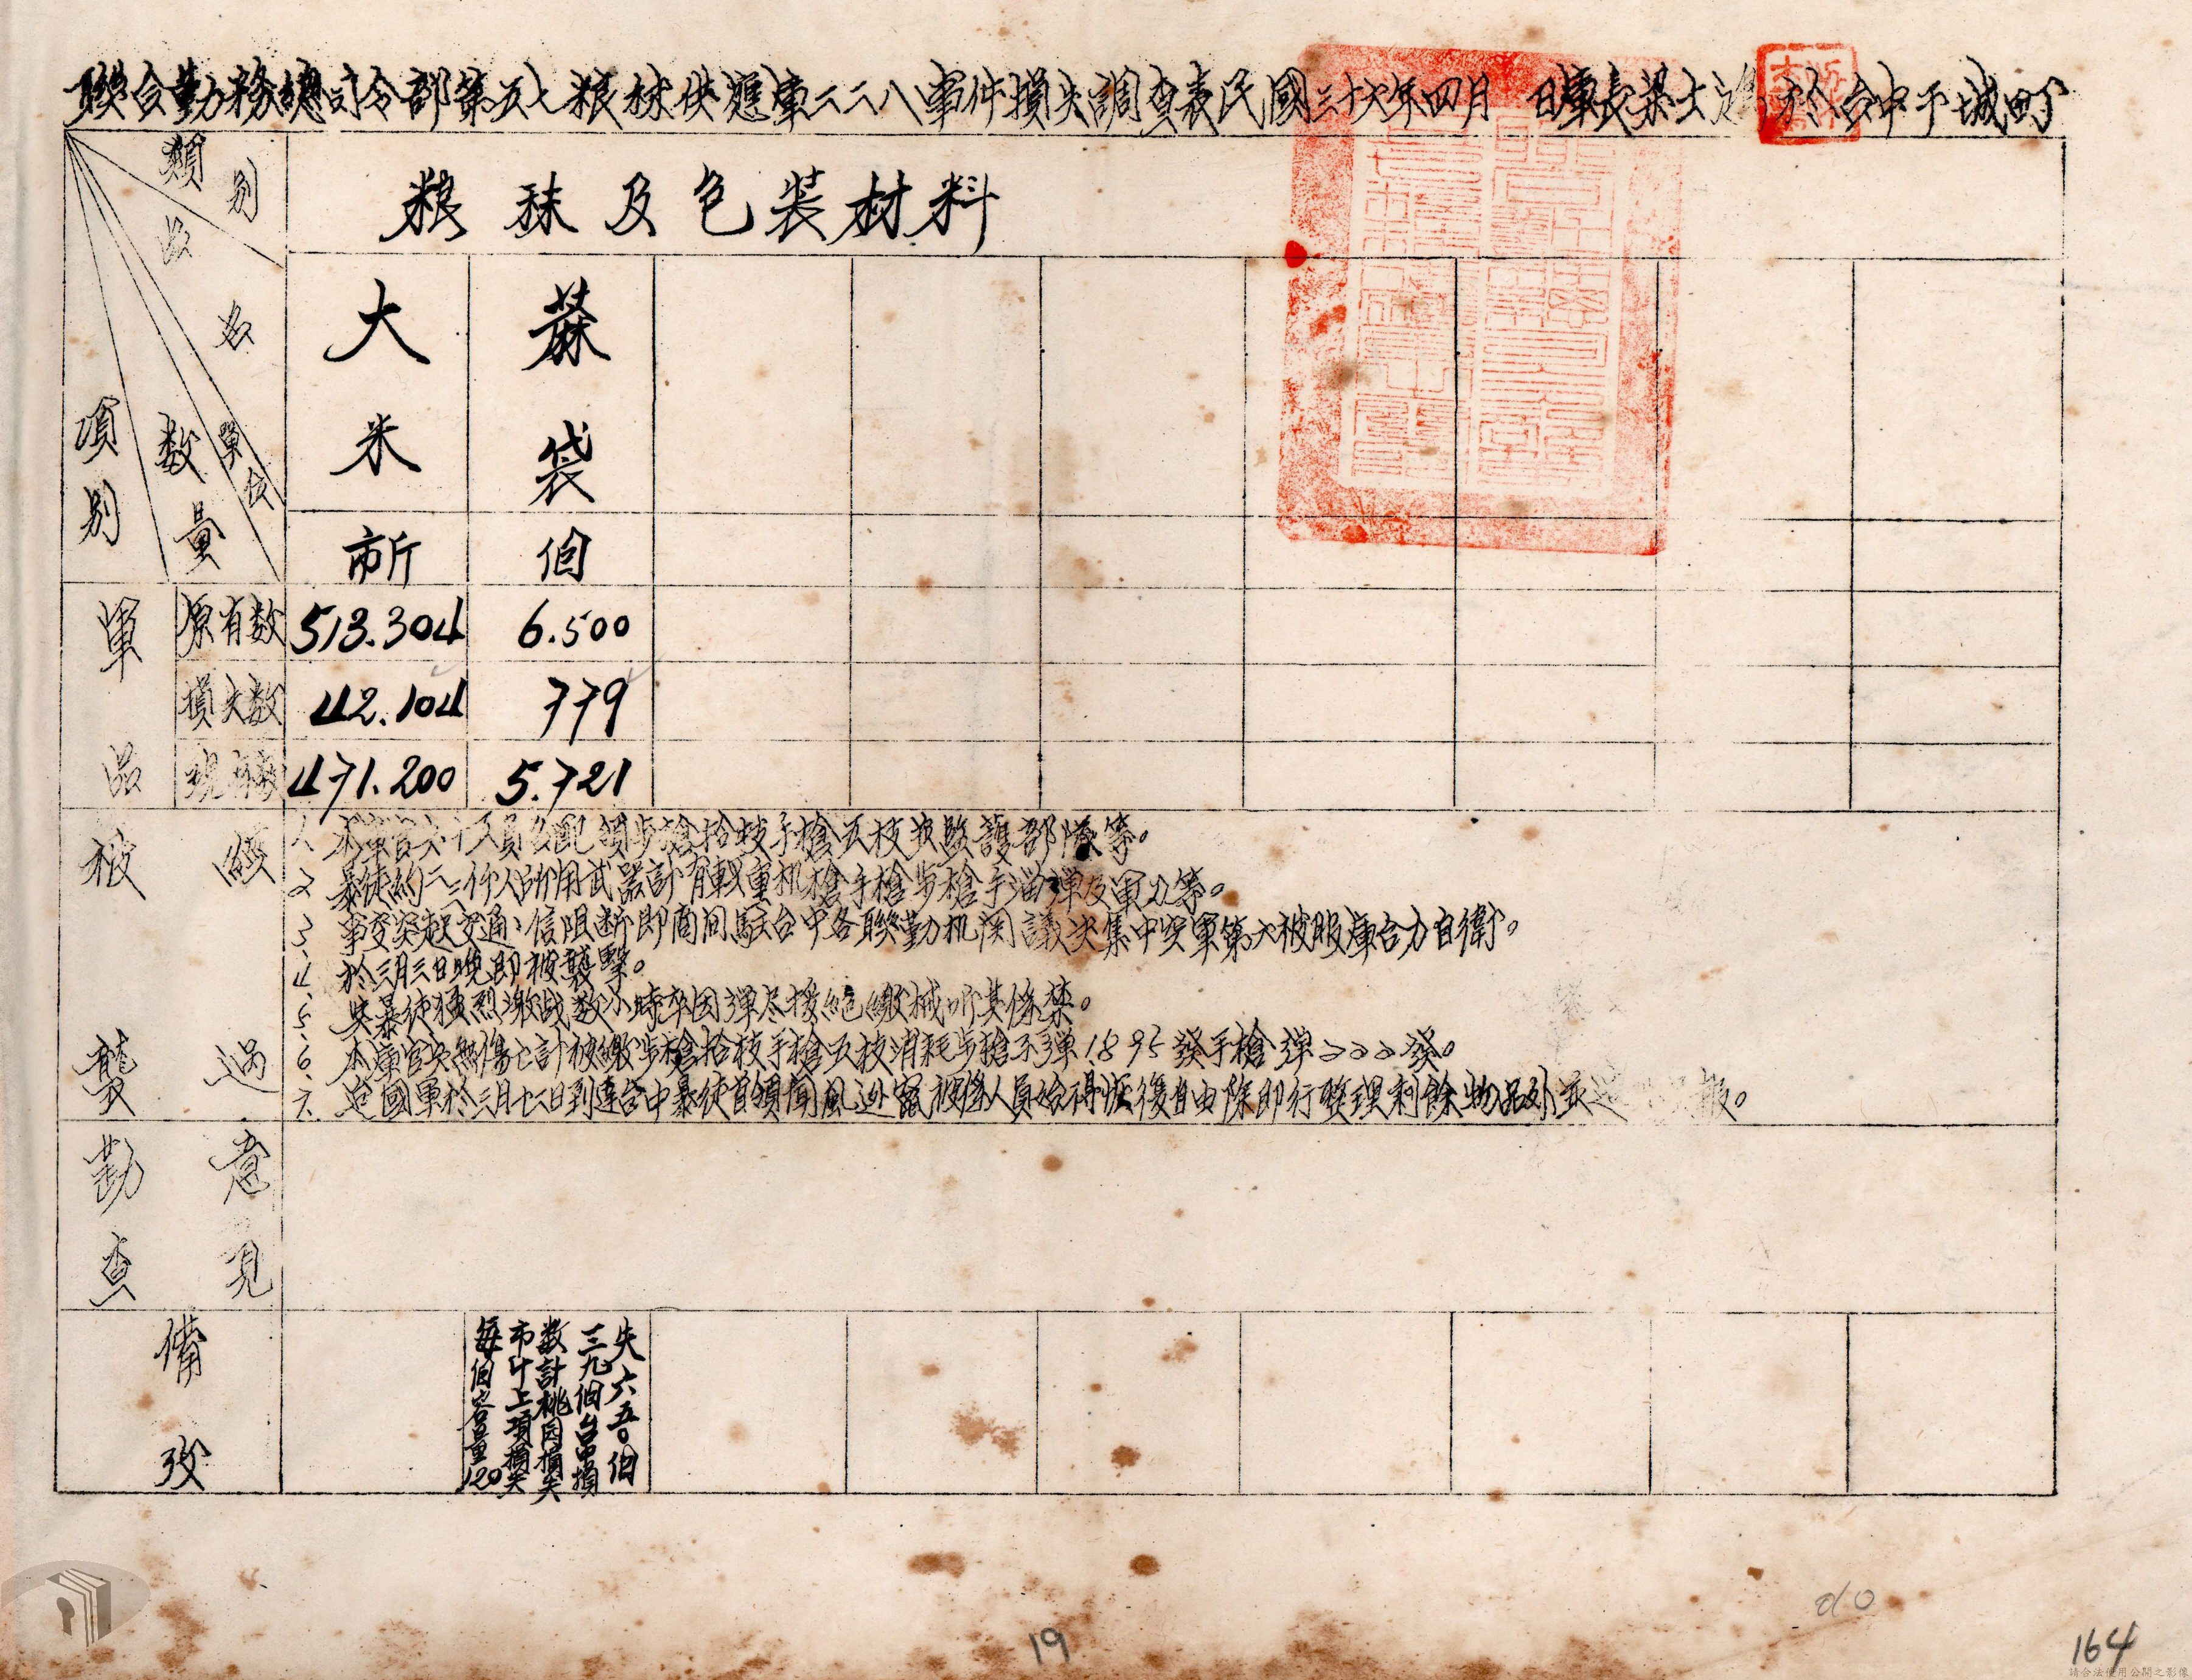 聯合勤務總司令部第五七粮秣供應庫二二八事件損失調查表民國三十六年四月 日庫長 於台中干城町
類別
品名
單位
数量
項別
粮秣及包装材料
大米
蔴袋
市斤
個
軍品
原有数
513.304
6.500
損失数
42.104
779
現有数
471.200
5.721
被襲經過
1. 本庫官兵十五員名配賦步槍拾枝手槍五枝及監護部隊等。
2. 暴徒約二三仟人所用武器計有輕重机槍手槍步槍手溜弹及軍刀等。
3. 事变突起交通通信阻断即商同駐台中各聯勤机関議决集中空軍第六被服庫合力自衛。
4. 於三月三日晚即被襲擊。
5. 與暴徒猛烈激战数小時卒因弹尽援絕繳械听其俘禁。
6. 本庫官兵無傷亡計被繳步槍拾枝手槍五枝消耗步槍子弹1895發手槍弹 發。
迨國軍於三月十三日到達台中暴徒首領聞風逃竄被俘人員始得恢復自由除即行整理剩餘物品外並 報。
勘查意見
備攷
每個容量120
市斤上項損失
数計桃园損失
三九個台中損
失六五〇個
19
20
164
請合法使用公開之影像